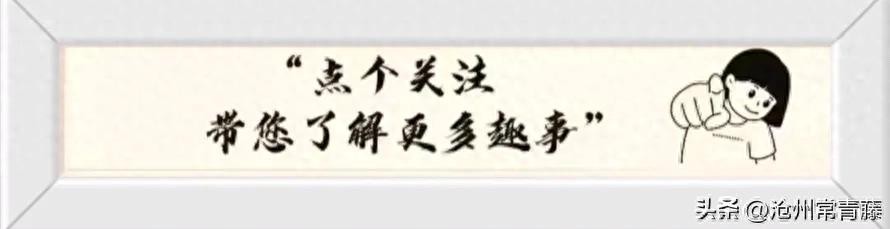 “点个关注
带您了解更多趣事”
头条 @沧州常青藤